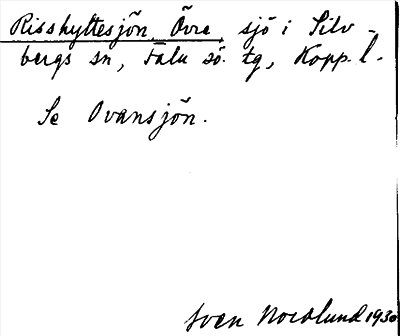 Risshyttesjön, Övre, sjö i Silv-
bergs sn, Falu sö. tg, Kopp. l.
Se Ovansjön.
Sven Nordlund 1930